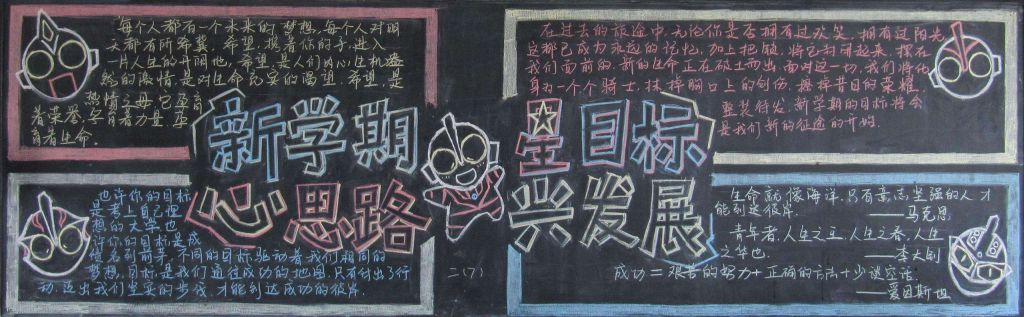 每个人都有一个未来的梦想,每个人对明
天都有所希冀,希望,揽着你的手,进入
一片人生的开阔地,希望,是人们内心生机盎
然的激情,是对生命充实的渴望,希望,是
热情之母,它孕育
着荣誉,孕育着力量,孕
育着生命.
新学期
心思路
星目标
兴发展
在过去的旅途中,无论你是否拥有过欢笑,拥有过阳光
这都已成为永远的记忆,加上把锁,将它封闭起来,摆在
我们面前的,新的生命正在破土而出,面对这一切,我们将化
身为一个个骑士,抹掉胸口上的创伤,摒掉昔日的荣耀,
整装待发,新学期的目标将会
是我们新的征途的开始.
也许你的目标
是考上自己理
想的大学也
许你的目标是成
绩名列前茅,不同的目标驱动着我们相同的
梦想,目标是我们通往成功的地图,只有付出了行
动,迈出我们坚实的步伐,才能到达成功的彼岸.
二(7)
生命就像海洋,只有意志坚强的人才
能到达彼岸.
——马克思
青年者,人生之王,人生之春,人生
之华也.
——李大钊
成功=艰苦的努力+正确的方法+少谈空话
——爱因斯坦